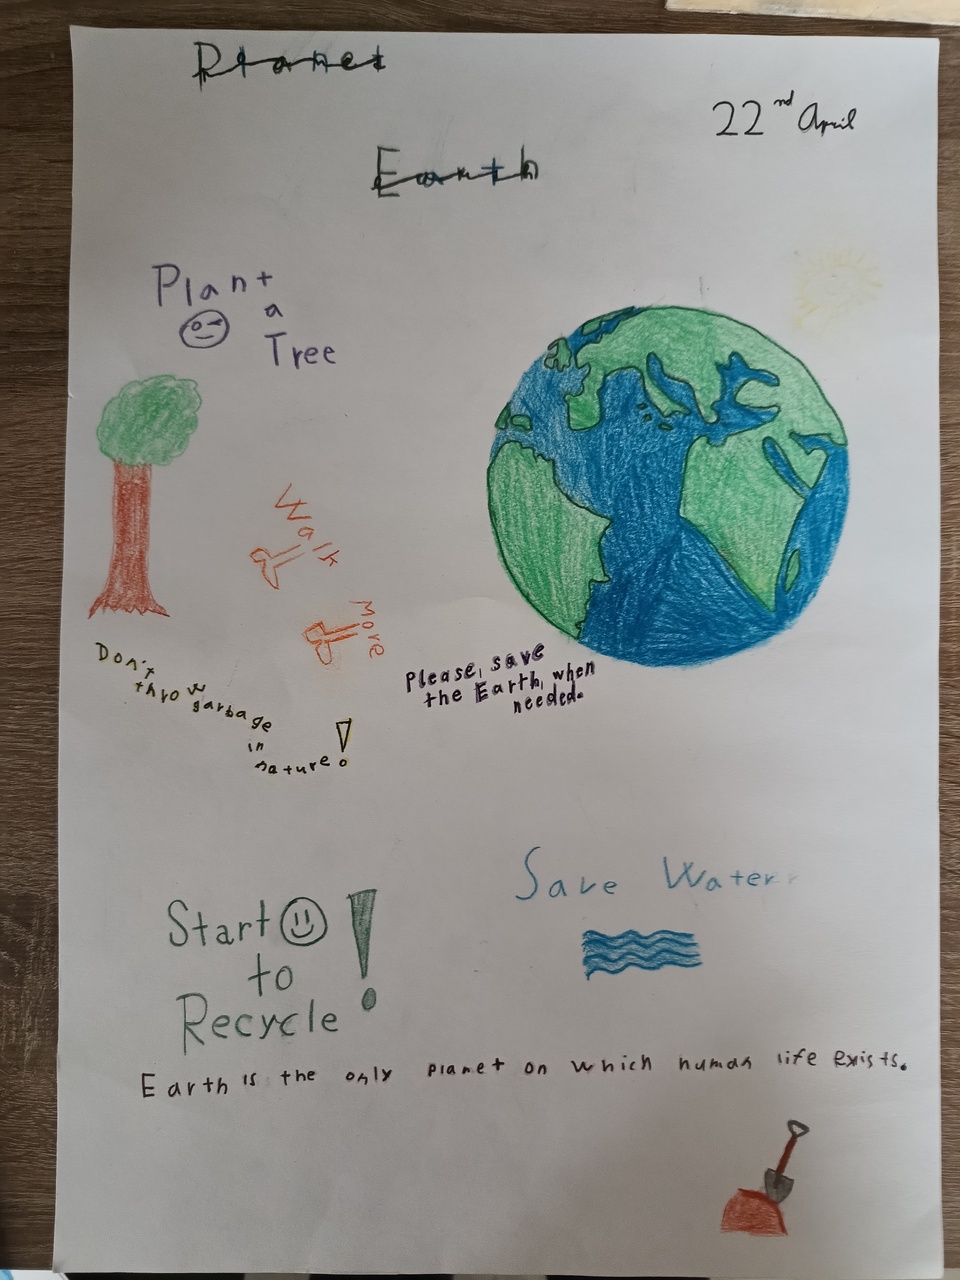 Planet
22nd April
Earth
Plant
a
Tree
Walk
Move
Don't
throw
garbage
in
nature!
Please, save
the Earth, when
needed.
Save Water
Start
to
Recycle!
Earth is the only planet on which human life exists.